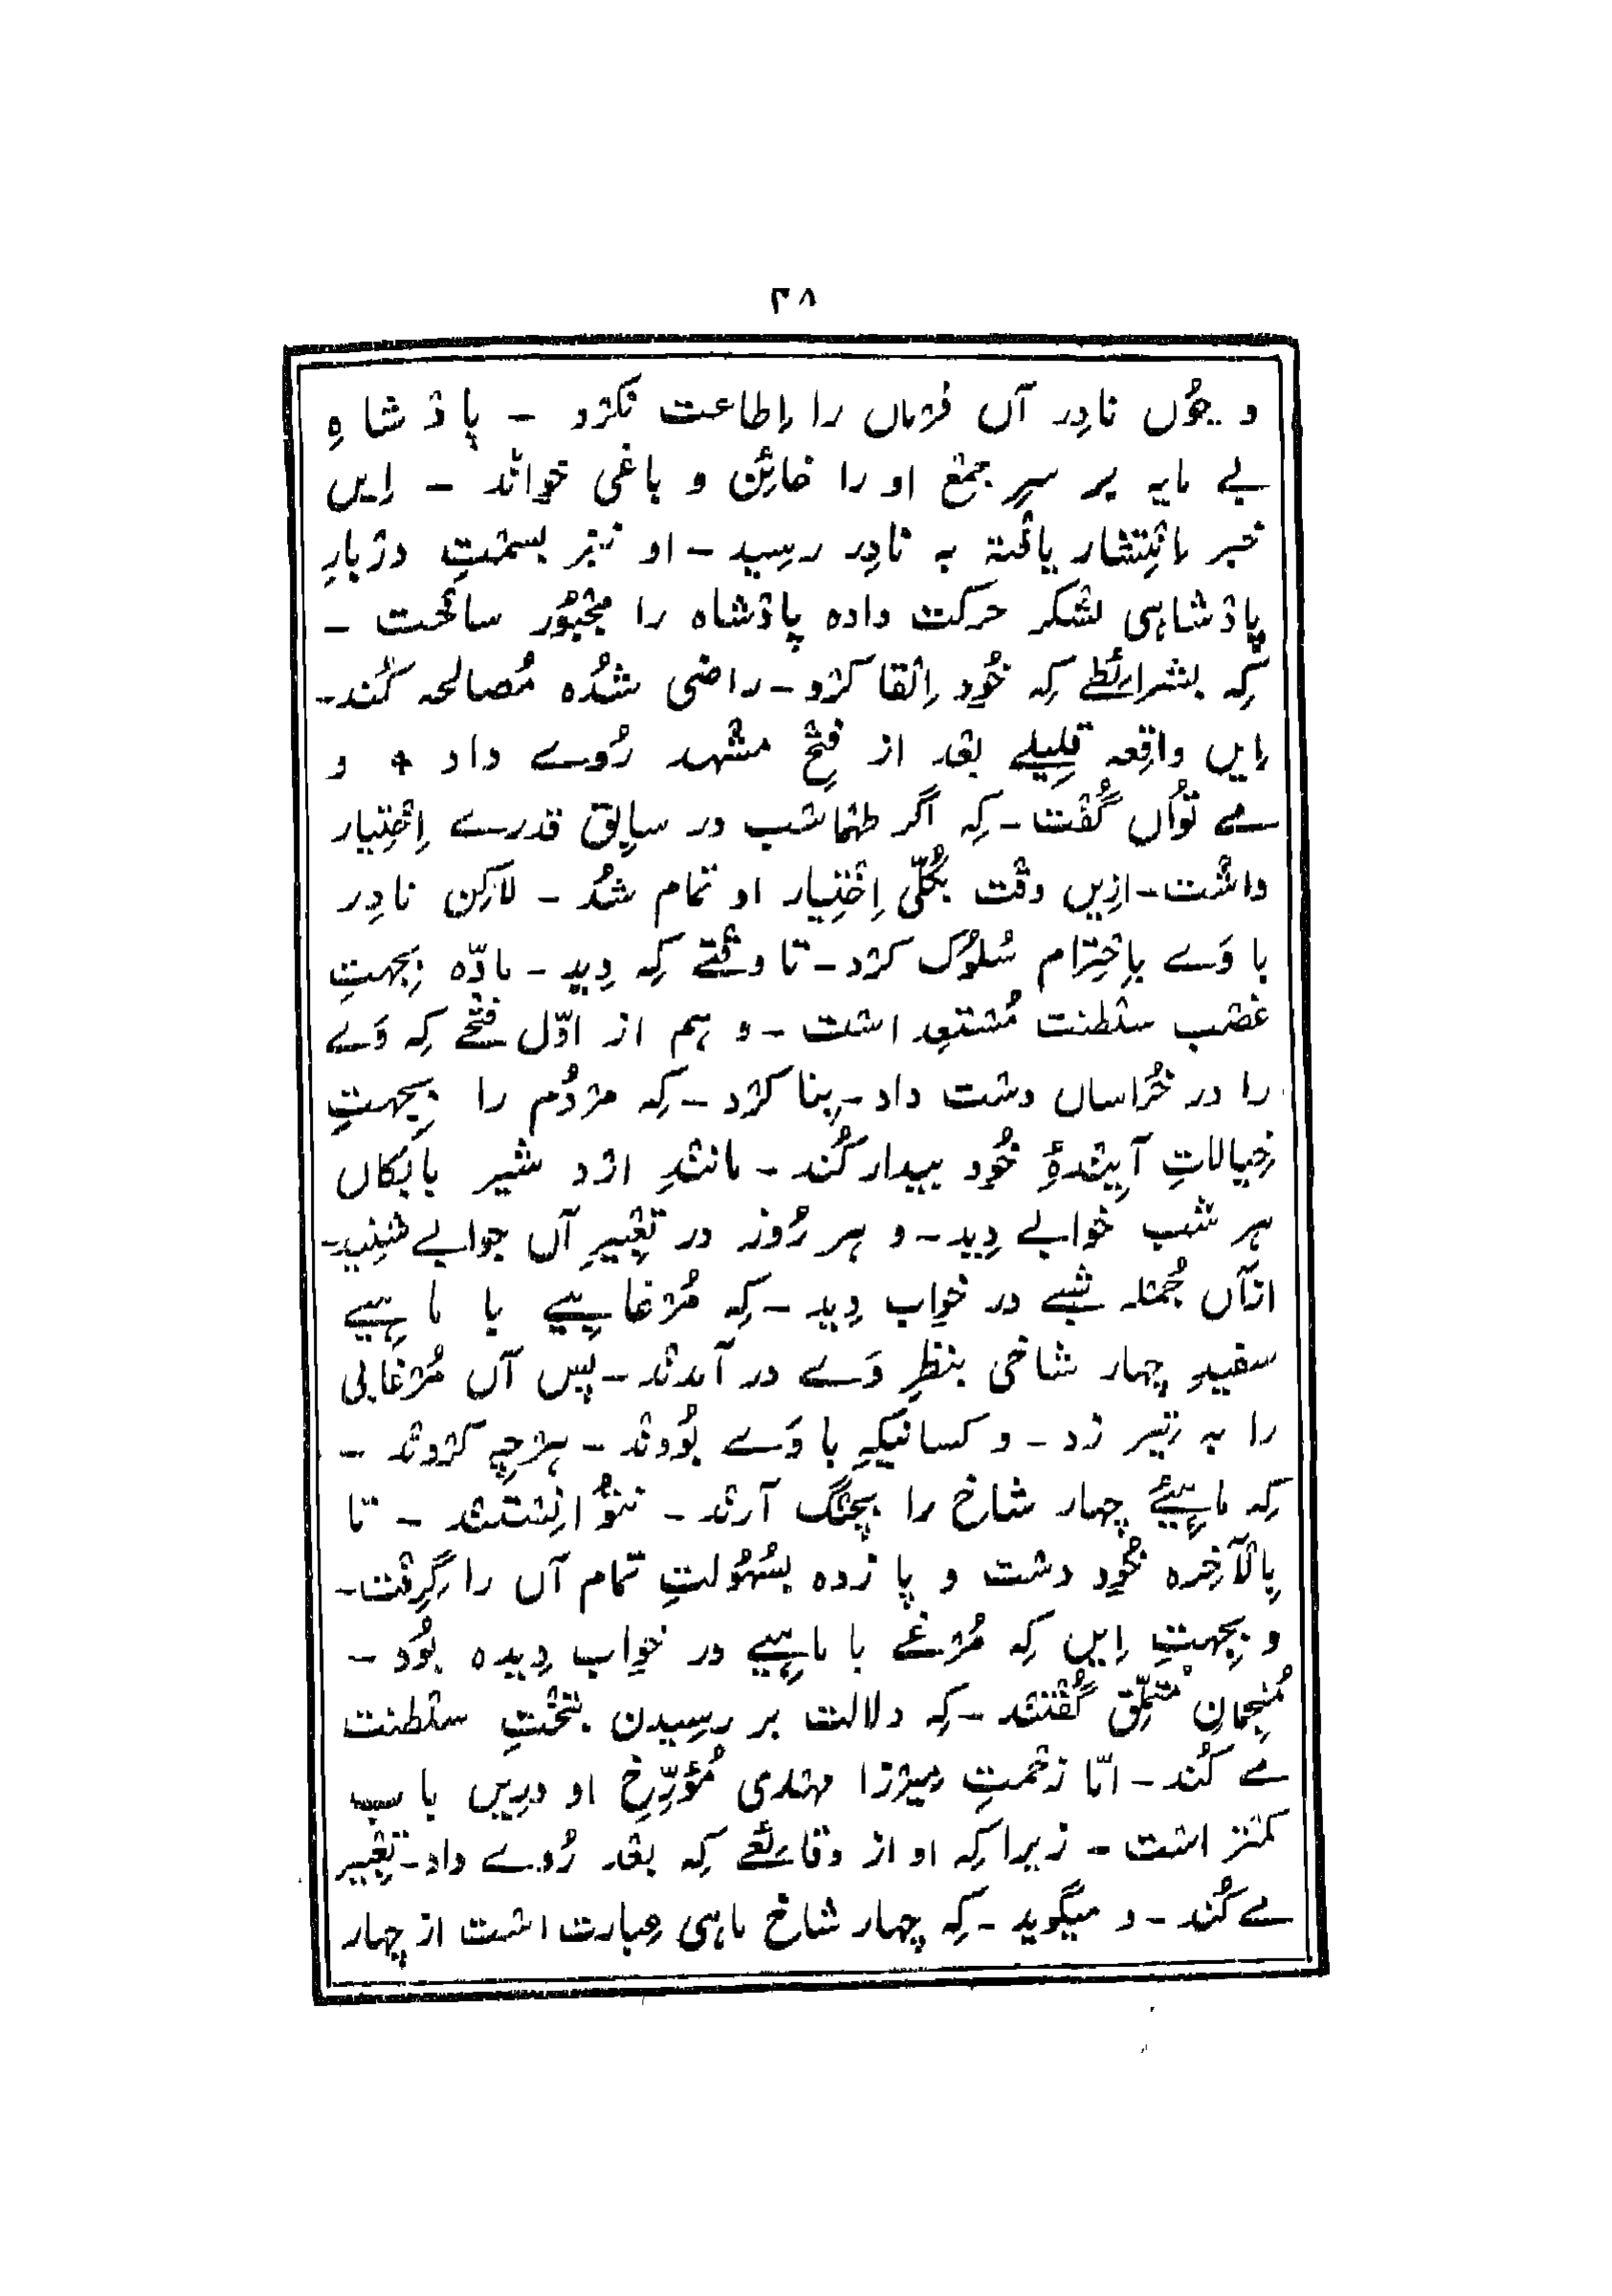 ۳۸
و چُوں نادِر آں فرْماں را اِطاعت نکرْد - پادْشاہِ
بے مایہ بر سرِ جمْع او را خائِن و باغی خوانْد - اِیں
خبر اِنْتِشار یافْتہ بہ نادِر رسِید - او نیز بسمْتِ درْبارِ
پادْشاہی لشْکر حرکت دادہ پادْشاہ را مجْبُور ساخْت -
کِہ بشرائِطے کِہ خُود اِلْقا کرْد - راضی شُدہ مُصالحہ کُند -
اِیں واقِعہ قلِیلے بعْد از فتْحِ مشْہد رُوے داد + و
مے تواں گُفْت - کِہ اگر طہْماسْب در سابِق قدرے اِخْتِیار
داشْت - ازِیں وقْت بکُلّی اِخْتِیار او تمام شُد - لاکِن نادِر
با وَے باِحْتِرام سُلُوک کرْد - تا وقْتے کِہ دِید - مادّہ بِجہتِ
غصْب سلْطنت مُسْتعِد اسْت - و ہم از اوّل فتْحے کِہ وَے
را در خُراساں دسْت داد - بِنا کرْد - کِہ مرْدُم را بِجہتِ
خیالاتِ آیِنْدۂ خُود بیدار کُند - ماننْدِ ارْد شیر بابکاں
ہر شب خوابے دِید - و ہر رُوز در تعْبِیرِ آں جوابے شنِید -
ازآں جُمْلہ شبے در خواب دِید - کِہ مُرْغابِیے با ماہِیے
سفیدِ چہار شاخی بنظرِ وَے در آمدنْد - پس آں مُرْغابی
را بہ تِیر زد - و کسانیکہ با وَے بُودنْد - ہرْچِہ کرْدنْد -
کِہ ماہِیِ چہار شاخ را بچنْگ آرنْد - نتوانِسْتنْد - تا
بِالْآخِرہ خُود دسْت و پا زدہ بسُہُولتِ تمام آں را گِرِفْت -
و بِجہتِ اِیں کِہ مُرْغے با ماہِیے در خواب دِیدہ بُود -
مُنجِّمانِ مُتملِّق گُفْتنْد - کِہ دلالت بر رسِیدن بتخْتِ سلْطنت
مے کُند - امّا زحْمتِ مِیرْزا مہْدی مُؤرِّخِ او درِیں باب
کمْتر اسْت - زیرا کِہ او از وقائِعے کِہ بعْد رُوے داد - تعْبِیر
مے کُند - و میگوید - کِہ چہار شاخ ماہی عِبارت اسْت از چہار